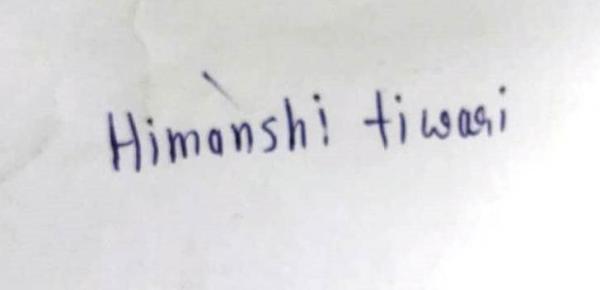 Himanshi tiwari